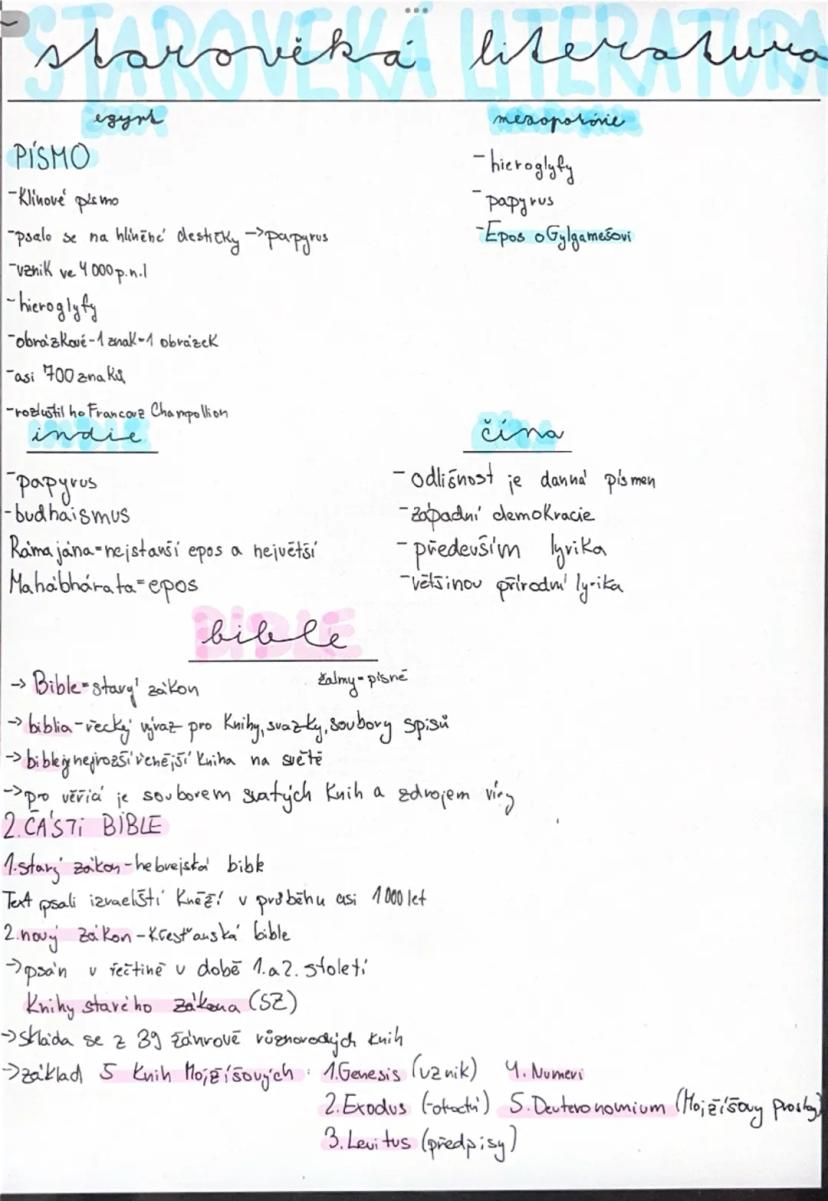 STAROVĚKÁ LITERATURA
starověká literatura
egypt
PÍSMO
-Klínové písmo
-psalo se na hliněné destičky ->papyrus
-vznik ve 4 000 p.n.l
-hieroglyfy
-obrázkové-1 znak=1 obrázek
-asi 700 znaků
-rozluštil ho Francouz Champollion
mezopotánie
-hieroglyfy
-papyrus
-Epos o Gylgamešovi
indie
-papyrus
-budhaismus
Rámajána=nejstarší epos a největší
Mahábhárata=epos
čína
-odlišnost je danná písmen
-západní demokracie
-především lyrika
-většinou přírodní lyrika
BIBLE
bible
žalmy=písně
-> Bible=starý zákon
->biblia-řecký výraz pro knihy, svazky, soubory spisů
->bible je nejrozšířenější kniha na světě
->pro věřící je souborem svatých knih a zdrojem víry
2.ČÁSTI BIBLE
1.starý zákon-hebrejská bible
Text psali izraelští kněží v průběhu asi 1 000 let
2.nový zákon-křesťanská bible
->psán v řečtině v době 1. a 2. století
Knihy starého zákona (SZ)
->skláda se z 39 žánrově různorodých knih
->základ 5 knih Mojžíšových: 1.Genesis (vznik) 4. Numeri
2.Exodus 5.Deuteronomium (Mojžíšovy
3.Levitus (předpisy)